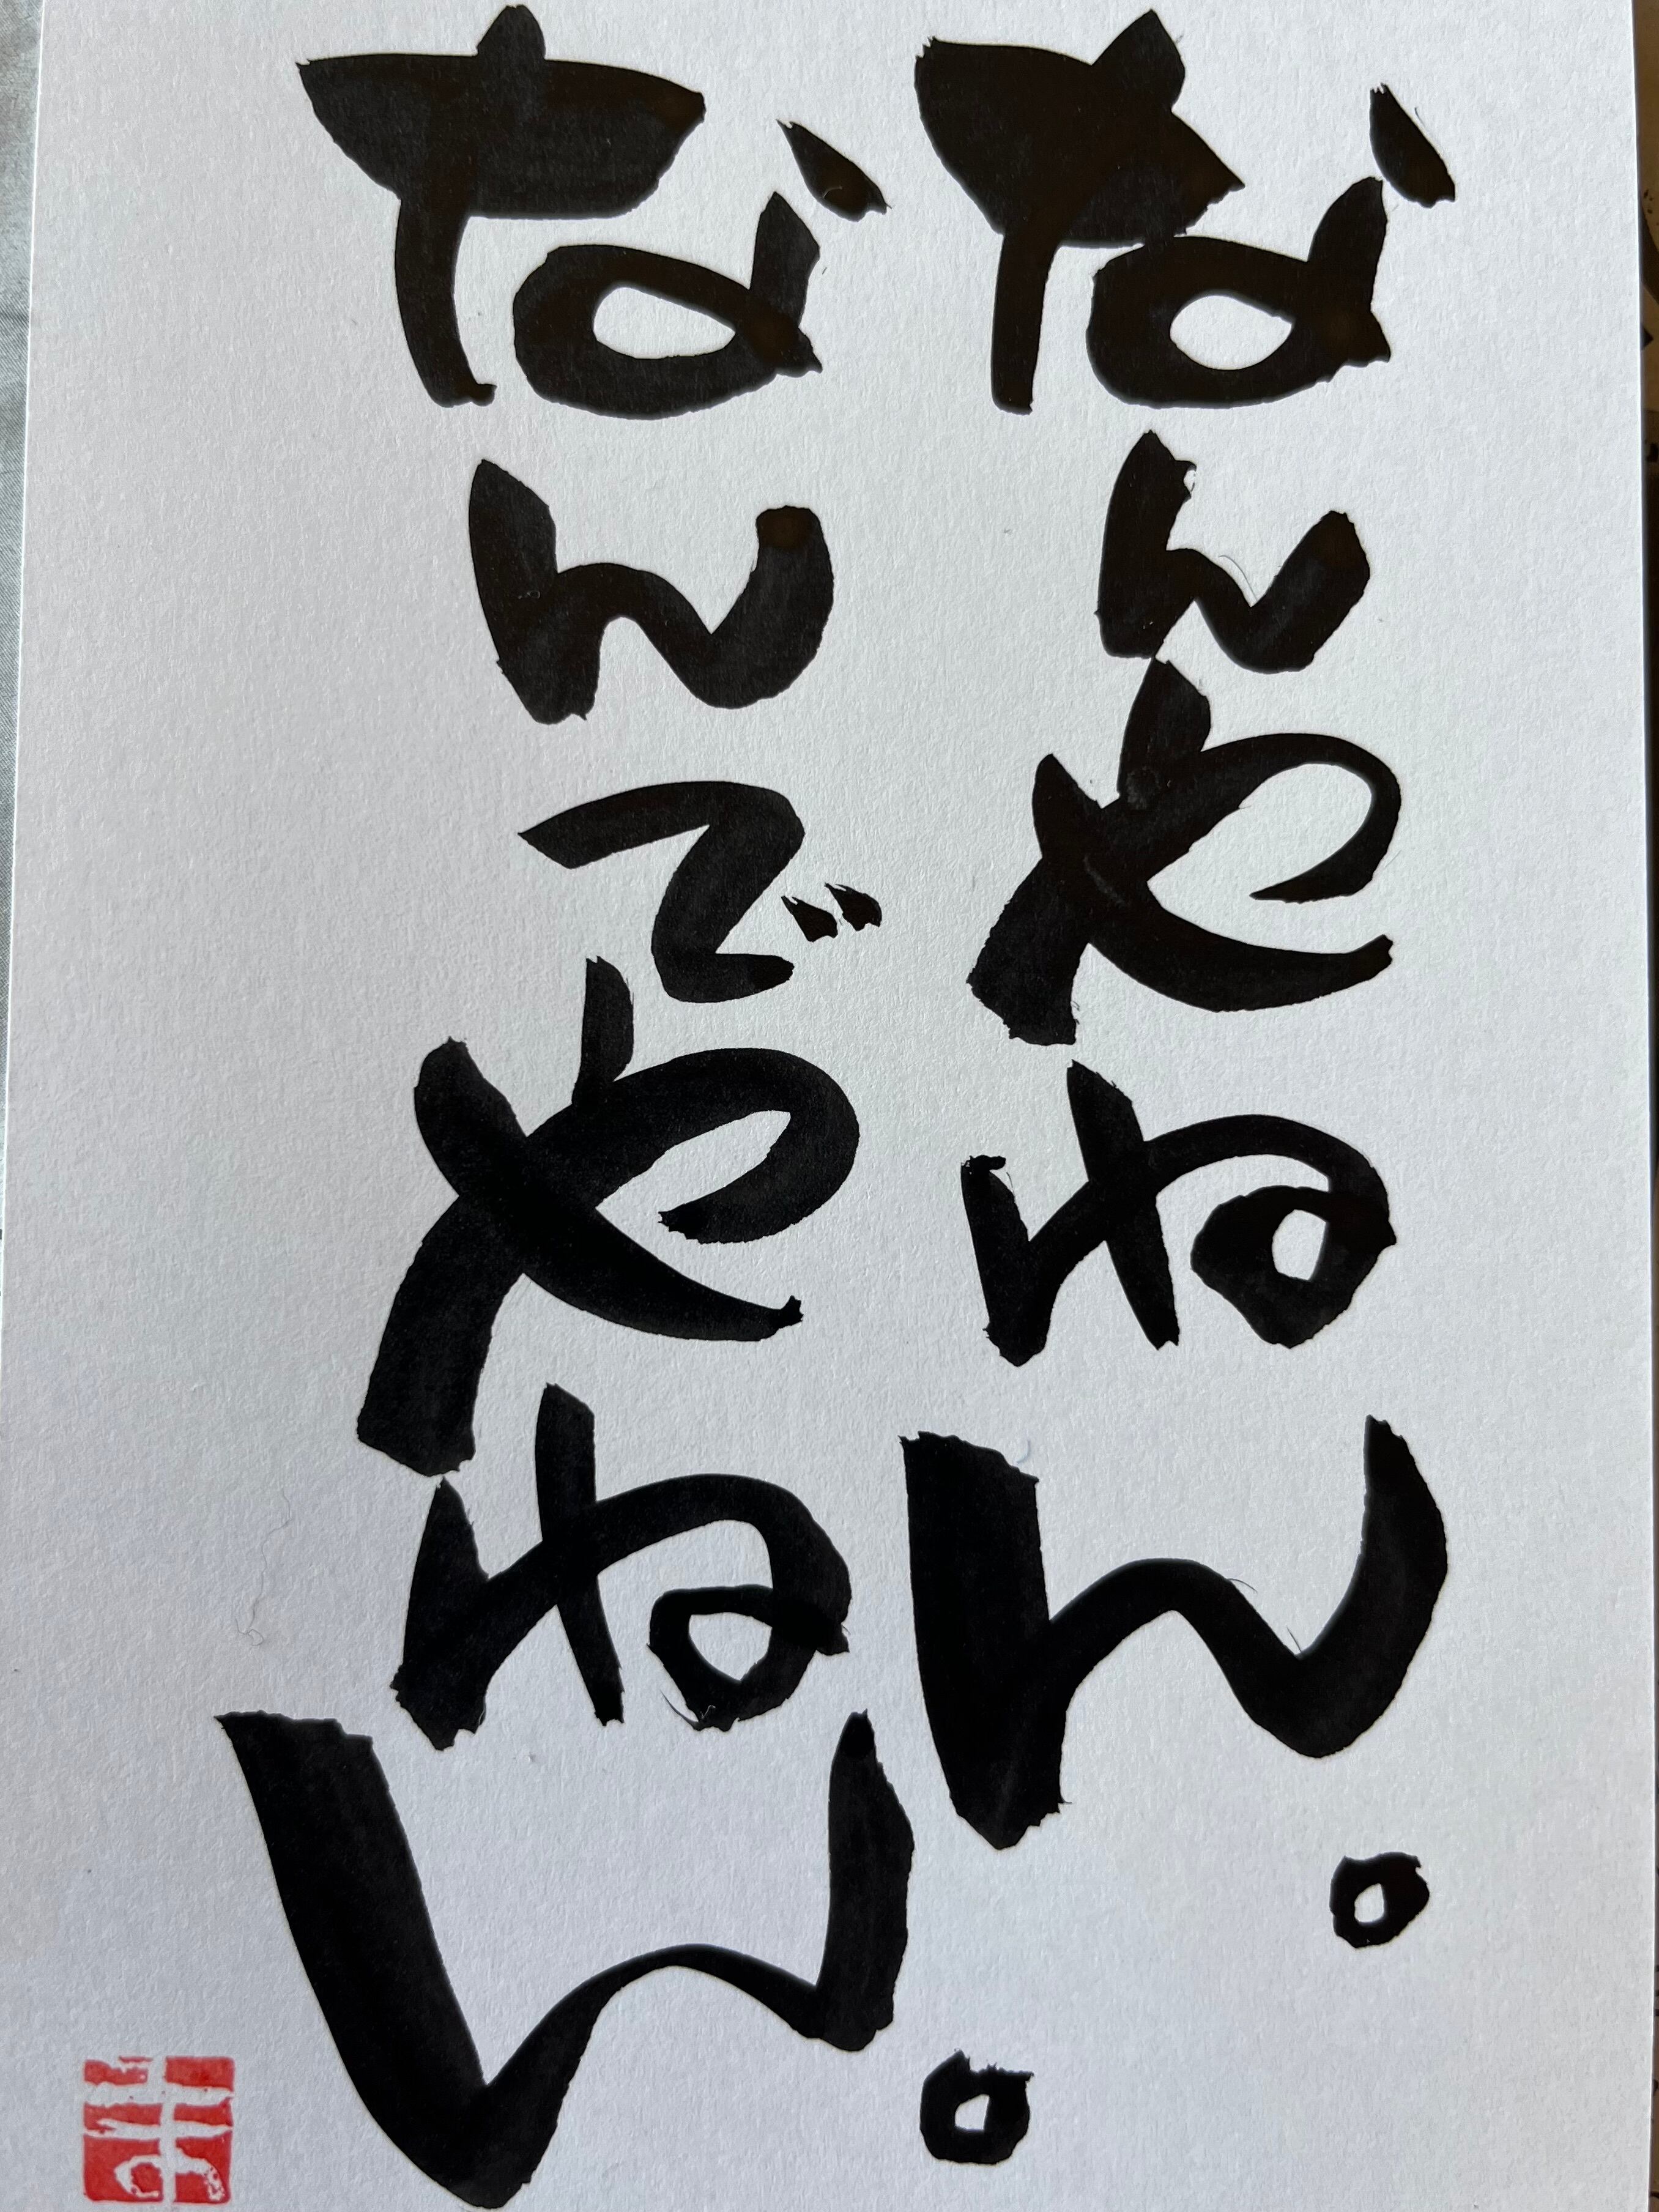 なんやねん。
なんでやねん。